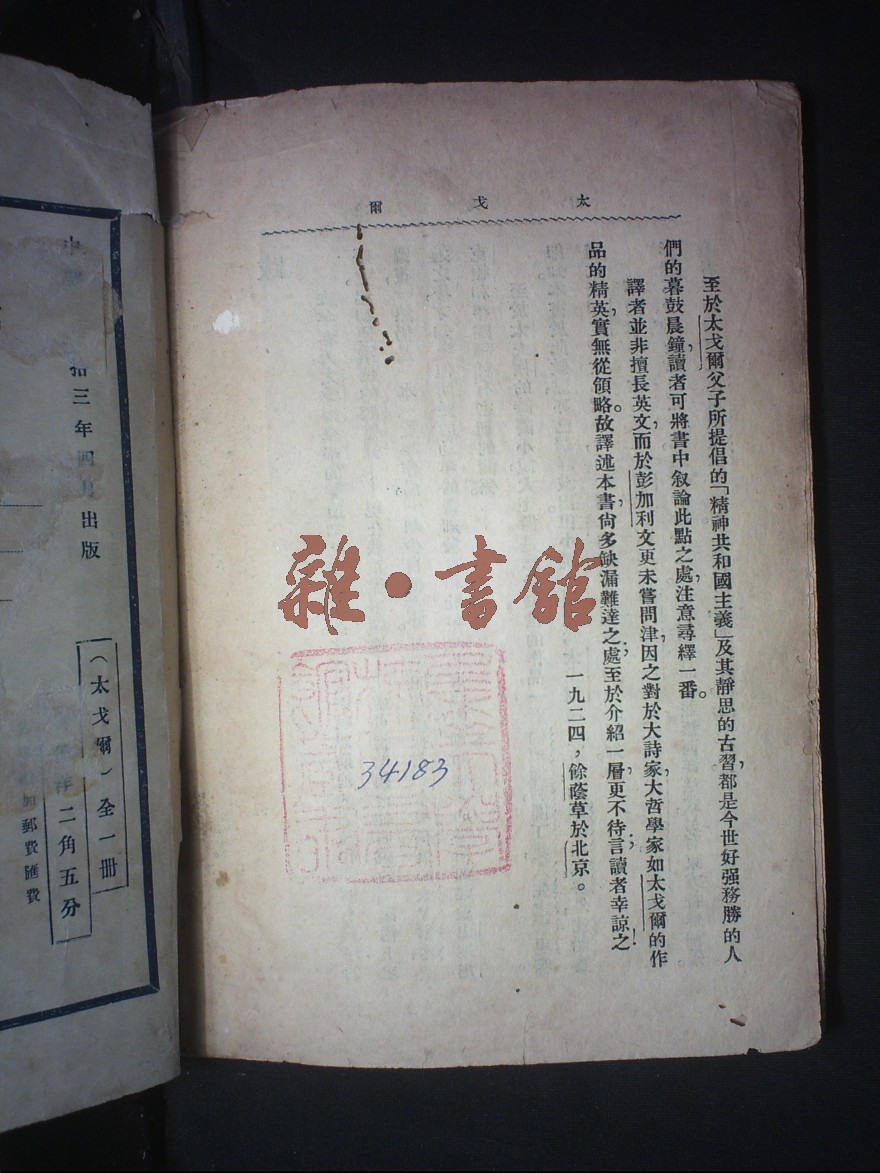 太戈爾
至於太戈爾父子所提倡的「精神共和國主義」及其靜思的古習，都是今世好强務勝的人
們的暮鼓晨鐘，讀者可將書中叙論此點之處，注意尋繹一番。
譯者並非擅長英文，而於彭加利文更未嘗問津，因之對於大詩家，大哲學家如太戈爾的作
品的精英，實無從領略。故譯述本書，尙多缺漏難達之處；至於介紹一層，更不待言；讀者幸諒之！
一九二四，餘蔭草於北京。
雜·書館
34183
三年四月出版
（太戈爾）全一冊
二角五分
加郵費匯費